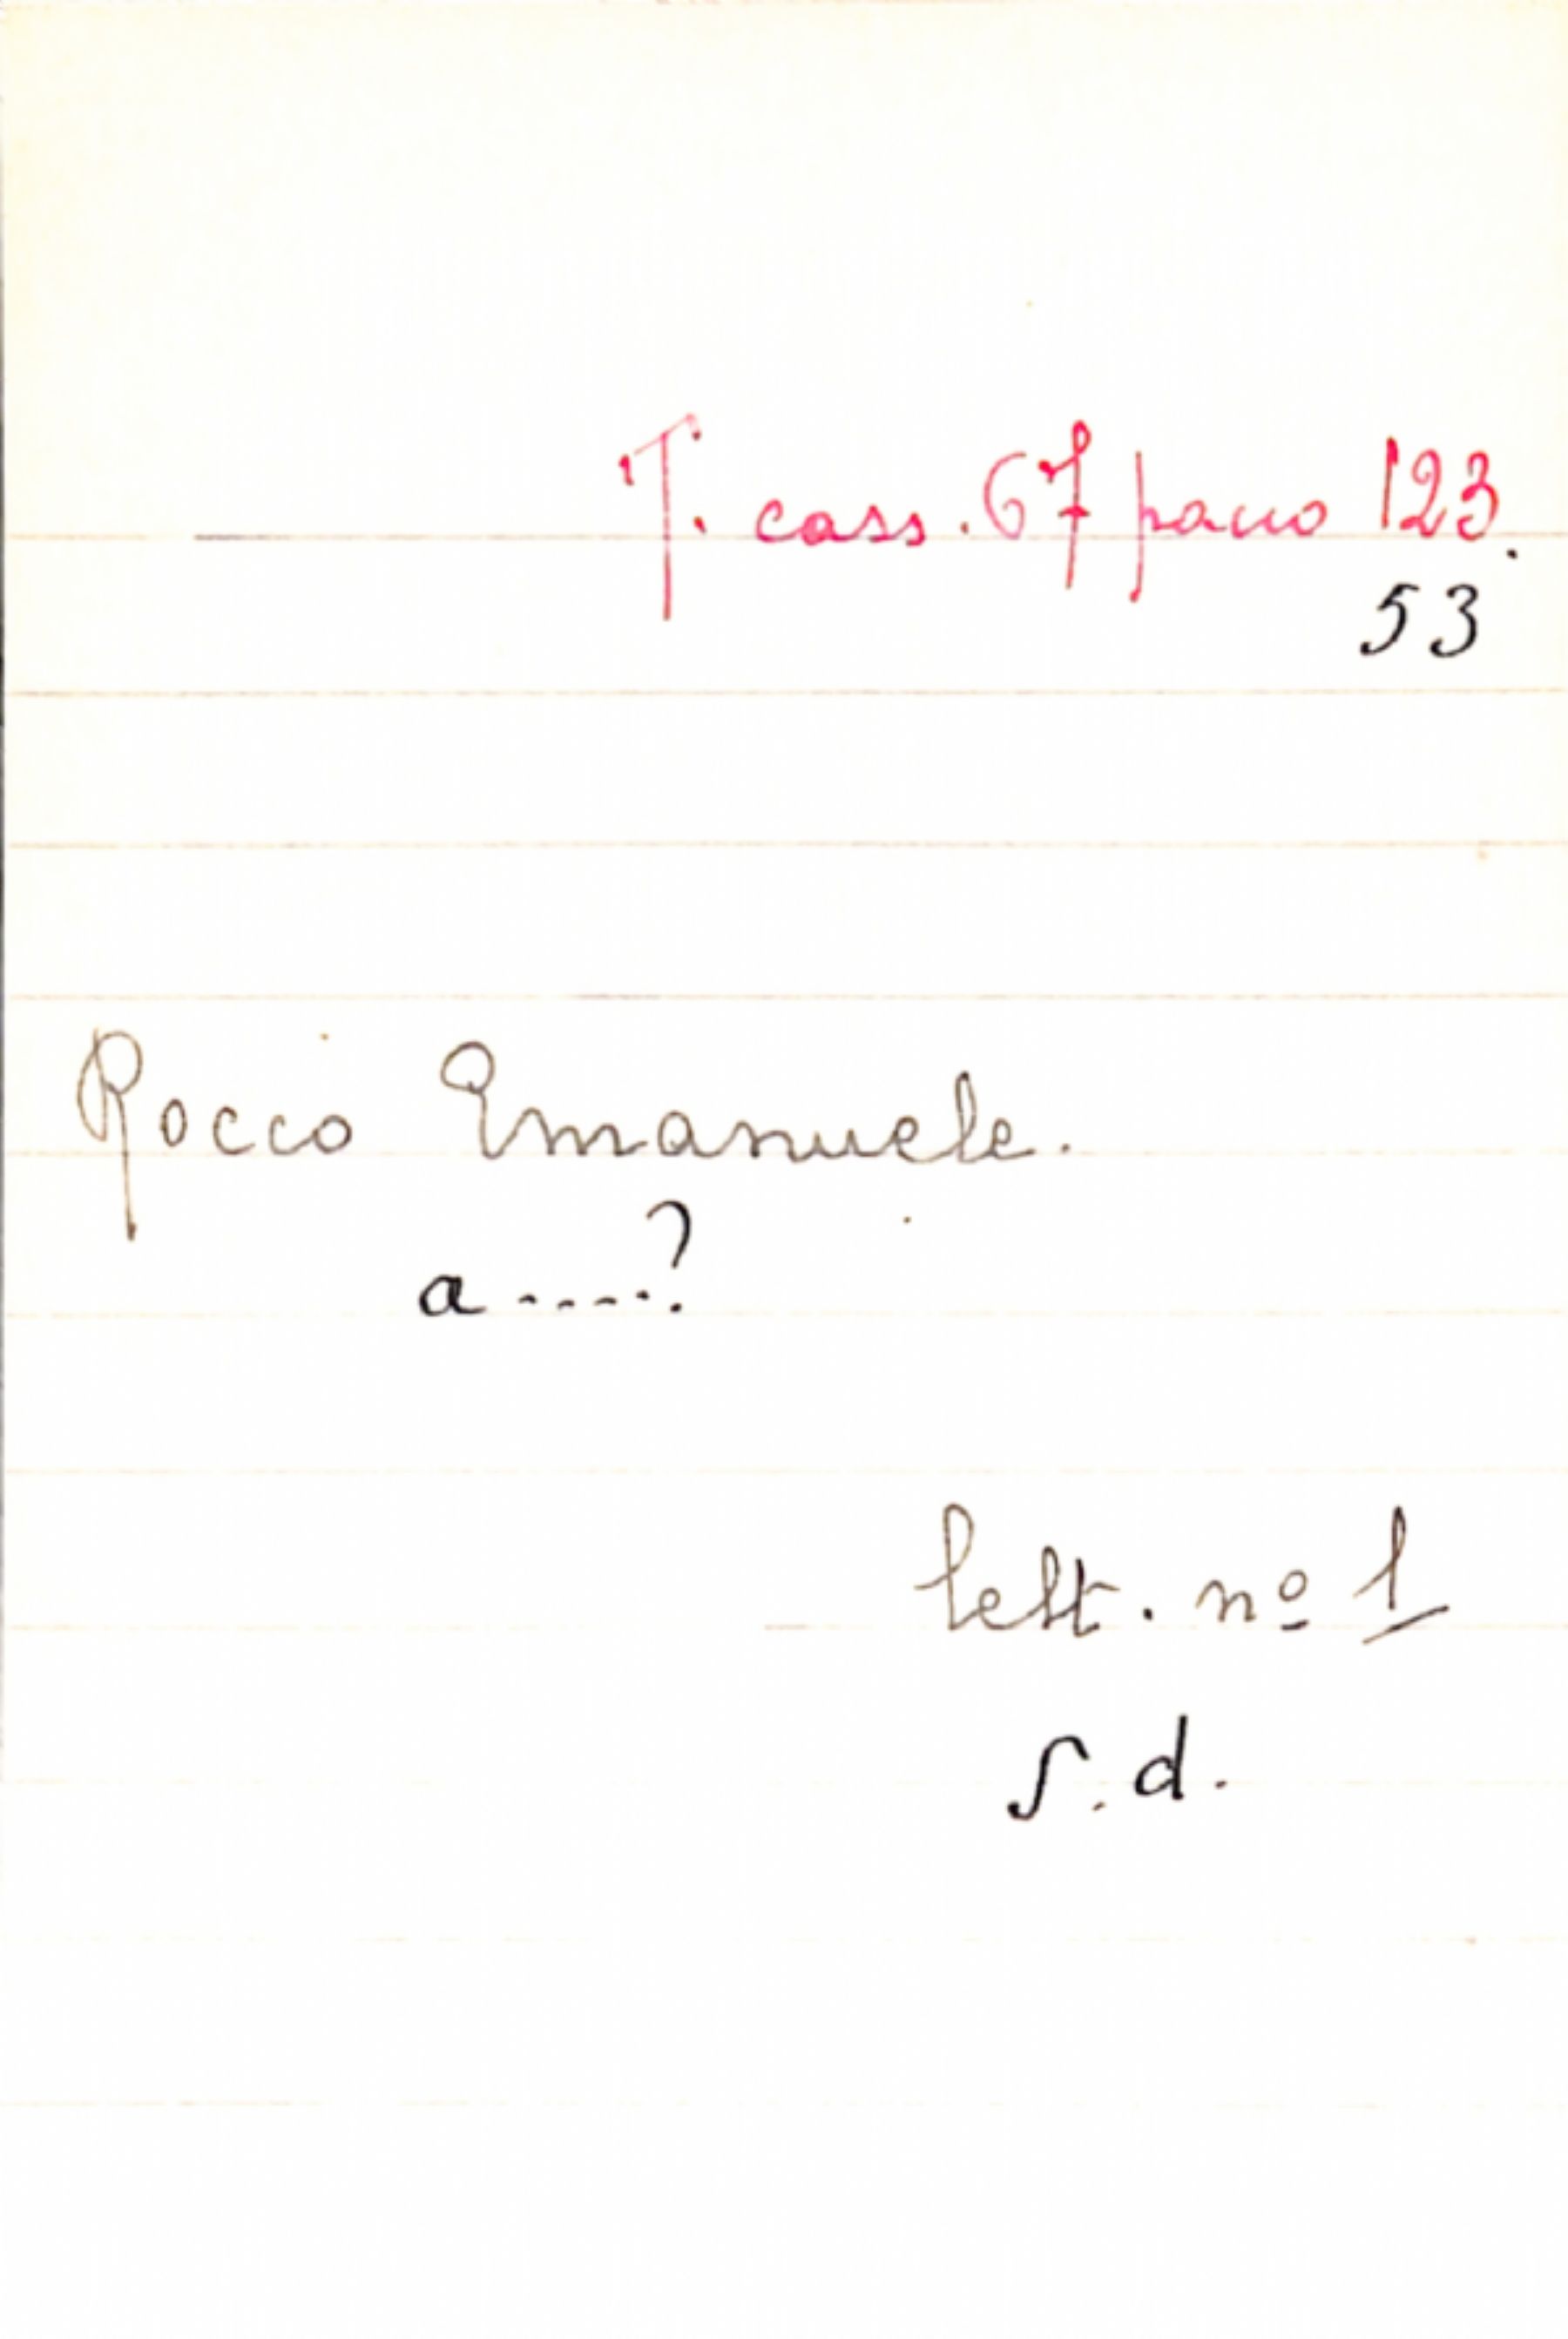 T. cass. 67 pacco 123.
53
Rocco Emanuele.
a ----?
lett. nº 1
S. d.